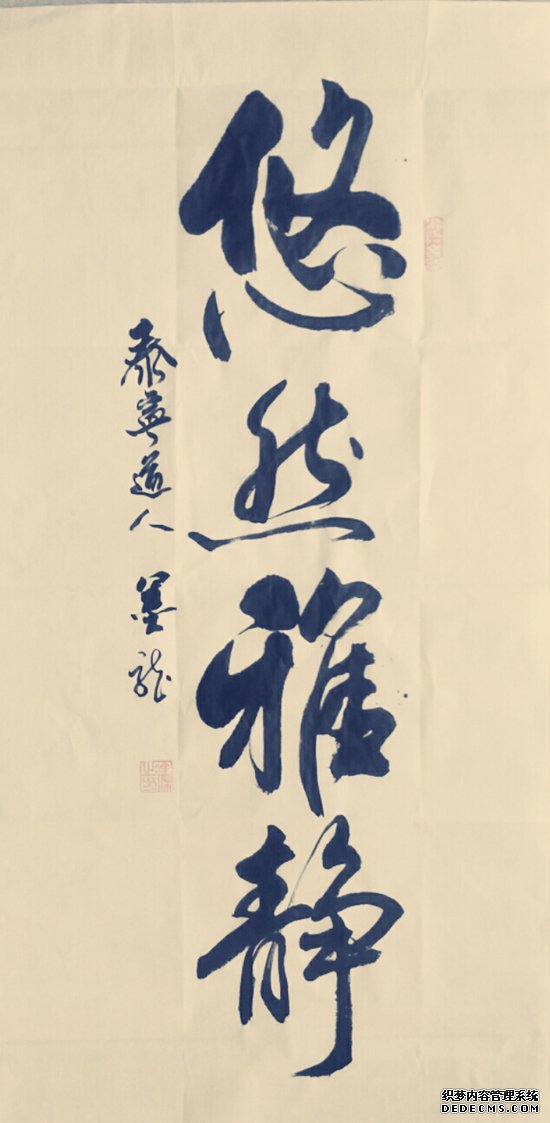 悠然雅静
泰宁道人 墨龙
织梦内容管理系统
DEDECMS.COM